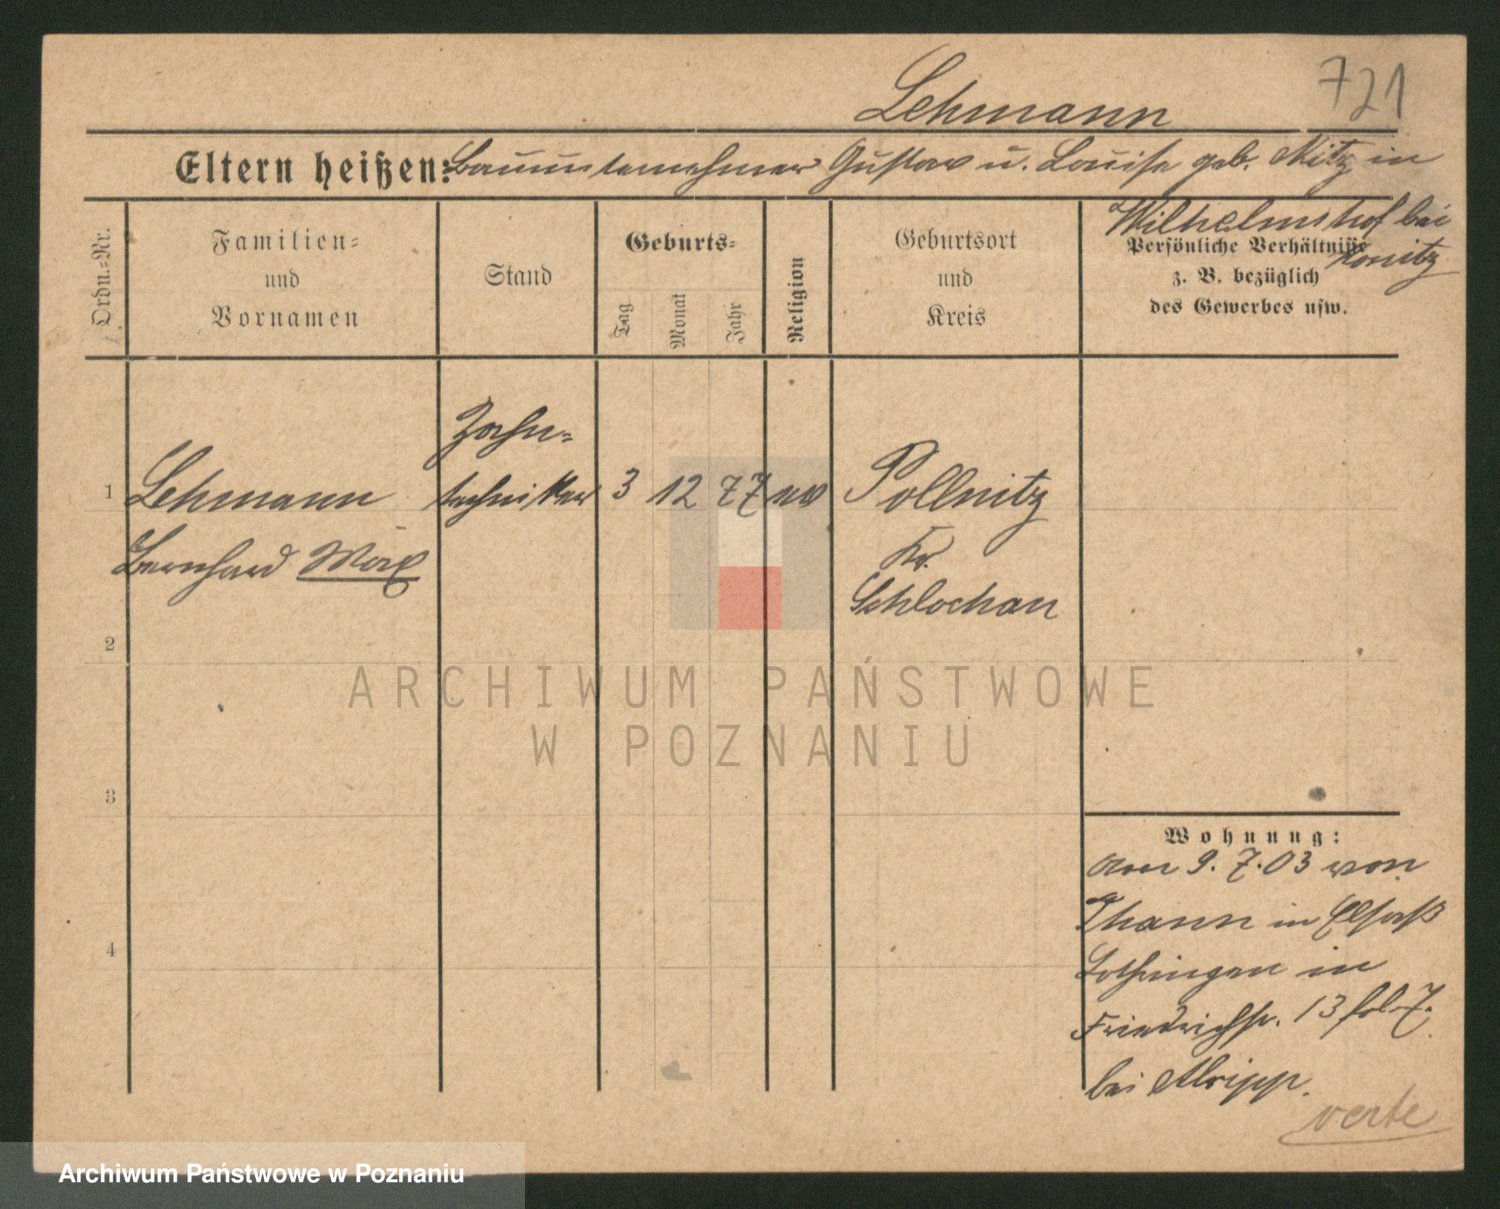 721
Lehmann
Eltern heißen: Bauunternehmer Gustav u. Louise geb. Nitz in
Wilhelmshof bei
Konitz
Ordn.-Nr.
Familien-
und
Vornamen
Stand
Geburts-
Tag
Monat
Jahr
Religion
Geburtsort
und
Kreis
Persönliche Verhältnisse
z. B. bezüglich
des Gewerbes usw.
Zahn-
1 Lehmann techniker 3 12 77 ev Pollnitz
Bernhard Max Kr.
Schlochau
2
3
4
Wohnung:
am 9. 7. 03 von
Thann in Elsaß
Lothringen in
Friedrichstr. 13 fol 7.
bei
verte
ARCHIWUM PAŃSTWOWE
W POZNANIU
Archiwum Państwowe w Poznaniu